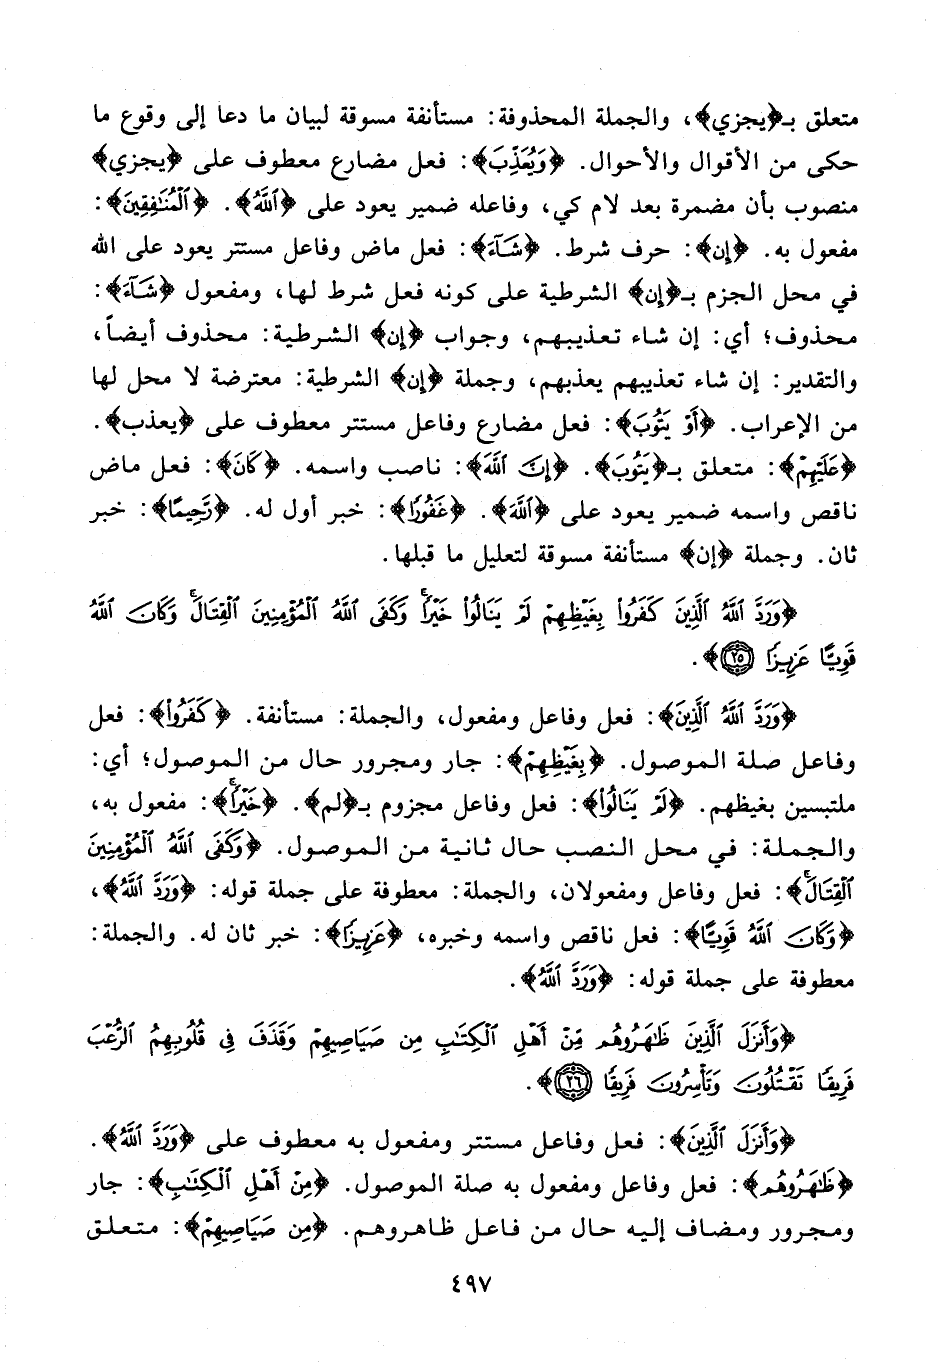 متعلق بـ﴿يجزي﴾، والجملة المحذوفة: مستأنفة مسوقة لبيان ما دعا إلى وقوع ما
حكى من الأقوال والأحوال. ﴿وَيُعَذِّبَ﴾: فعل مضارع معطوف على ﴿يجزي﴾
منصوب بأن مضمرة بعد لام كي، وفاعله ضمير يعود على ﴿ٱللَّهُ﴾. ﴿ٱلْمُنَٰفِقِينَ﴾:
مفعول به. ﴿إن﴾: حرف شرط. ﴿شَآءَ﴾: فعل ماض وفاعل مستتر يعود على الله
في محل الجزم بـ﴿إن﴾ الشرطية على كونه فعل شرط لها، ومفعول ﴿شَآءَ﴾:
محذوف؛ أي: إن شاء تعذيبهم، وجواب ﴿إن﴾ الشرطية: محذوف أيضاً،
والتقدير: إن شاء تعذيبهم يعذبهم، وجملة ﴿إن﴾ الشرطية: معترضة لا محل لها
من الإعراب. ﴿أَوْ يَتُوبَ﴾: فعل مضارع وفاعل مستتر معطوف على ﴿يعذب﴾.
﴿عَلَيْهِمْ﴾: متعلق بـ﴿يَتُوبَ﴾. ﴿إِنَّ ٱللَّهَ﴾: ناصب واسمه. ﴿كَانَ﴾: فعل ماض
ناقص واسمه ضمير يعود على ﴿ٱللَّهَ﴾. ﴿غَفُورًا﴾: خبر أول له. ﴿رَّحِيمًا﴾: خبر
ثان. وجملة ﴿إن﴾ مستأنفة مسوقة لتعليل ما قبلها.
﴿وَرَدَّ ٱللَّهُ ٱلَّذِينَ كَفَرُوا۟ بِغَيْظِهِمْ لَمْ يَنَالُوا۟ خَيْرًا ۚ وَكَفَى ٱللَّهُ ٱلْمُؤْمِنِينَ ٱلْقِتَالَ ۚ وَكَانَ ٱللَّهُ
قَوِيًّا عَزِيزًا ٢٥﴾.
﴿وَرَدَّ ٱللَّهُ ٱلَّذِينَ﴾: فعل وفاعل ومفعول، والجملة: مستأنفة. ﴿كَفَرُوا۟﴾: فعل
وفاعل صلة الموصول. ﴿بِغَيْظِهِمْ﴾: جار ومجرور حال من الموصول؛ أي:
ملتبسين بغيظهم. ﴿لَمْ يَنَالُوا۟﴾: فعل وفاعل مجزوم بـ﴿لم﴾. ﴿خَيْرًا ۚ﴾: مفعول به،
والجملة: في محل النصب حال ثانية من الموصول. ﴿وَكَفَى ٱللَّهُ ٱلْمُؤْمِنِينَ
ٱلْقِتَالَ ۚ﴾: فعل وفاعل ومفعولان، والجملة: معطوفة على جملة قوله: ﴿وَرَدَّ ٱللَّهُ﴾،
﴿وَكَانَ ٱللَّهُ قَوِيًّا﴾: فعل ناقص واسمه وخبره، ﴿عَزِيزًا﴾: خبر ثان له. والجملة:
معطوفة على جملة قوله: ﴿وَرَدَّ ٱللَّهُ﴾.
﴿وَأَنزَلَ ٱلَّذِينَ ظَٰهَرُوهُم مِّنْ أَهْلِ ٱلْكِتَٰبِ مِن صَيَاصِيهِمْ وَقَذَفَ فِى قُلُوبِهِمُ ٱلرُّعْبَ
فَرِيقًا تَقْتُلُونَ وَتَأْسِرُونَ فَرِيقًا ٢٦﴾.
﴿وَأَنزَلَ ٱلَّذِينَ﴾: فعل وفاعل مستتر ومفعول به معطوف على ﴿وَرَدَّ ٱللَّهُ﴾.
﴿ظَٰهَرُوهُم﴾: فعل وفاعل ومفعول به صلة الموصول. ﴿مِنْ أَهْلِ ٱلْكِتَٰبِ﴾: جار
ومجرور ومضاف إليه حال من فاعل ظاهروهم. ﴿مِن صَيَاصِيهِمْ﴾: متعلق
٤٩٧